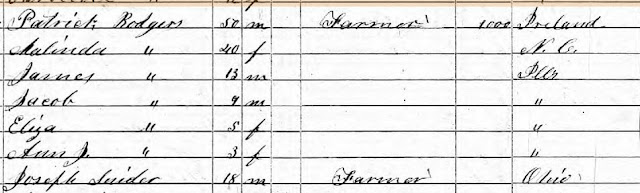 Patrick Rodgers 50 m Farmer 1000 Ireland
Malinda " 40 f N. C.
James " 13 m Ills
Jacob " 9 m "
Eliza " 5 f "
Ann J. " 3 f "
Joseph Snider 18 m Farmer Ohio